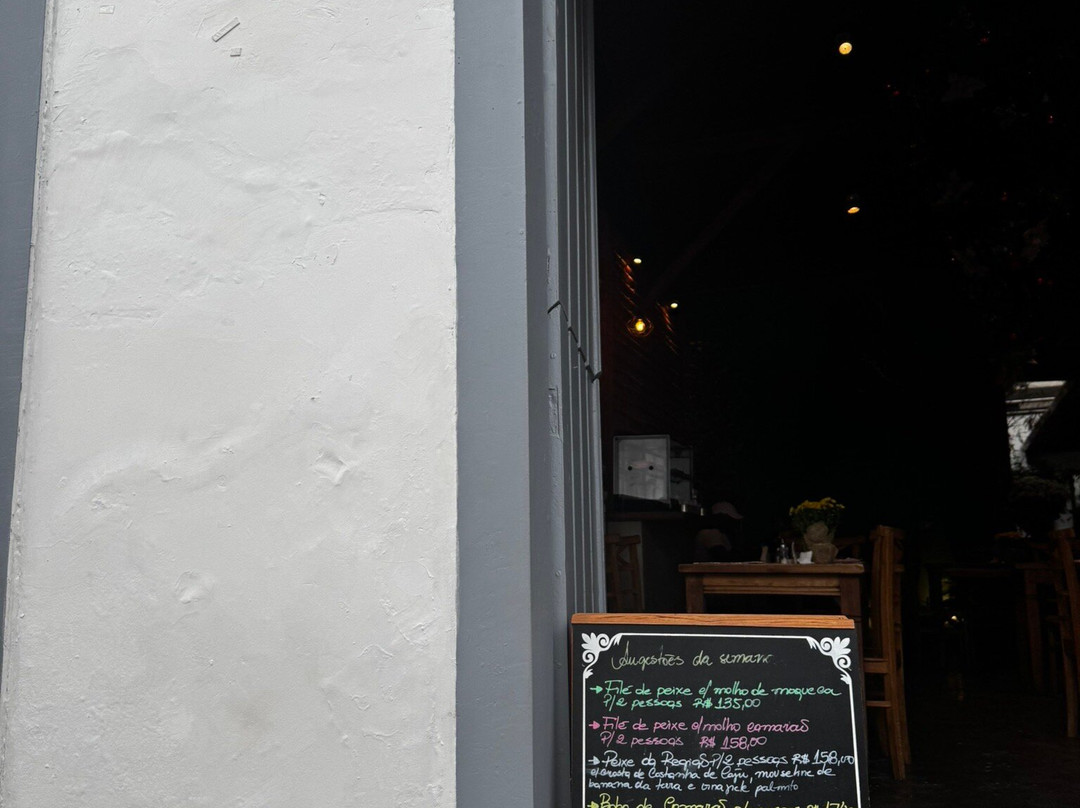 Sugestões da semana
→ Filé de peixe c/ molho de moqueca
P/2 pessoas R$ 135,00
→ Filé de peixe c/ molho camarão
P/2 pessoas R$ 158,00
→ Peixe da Região P/2 pessoas R$ 158,00
c/ crosta de Castanha de Caju, mousseline de
banana da terra e vinagrete palmito
→ Bobo de Camarão